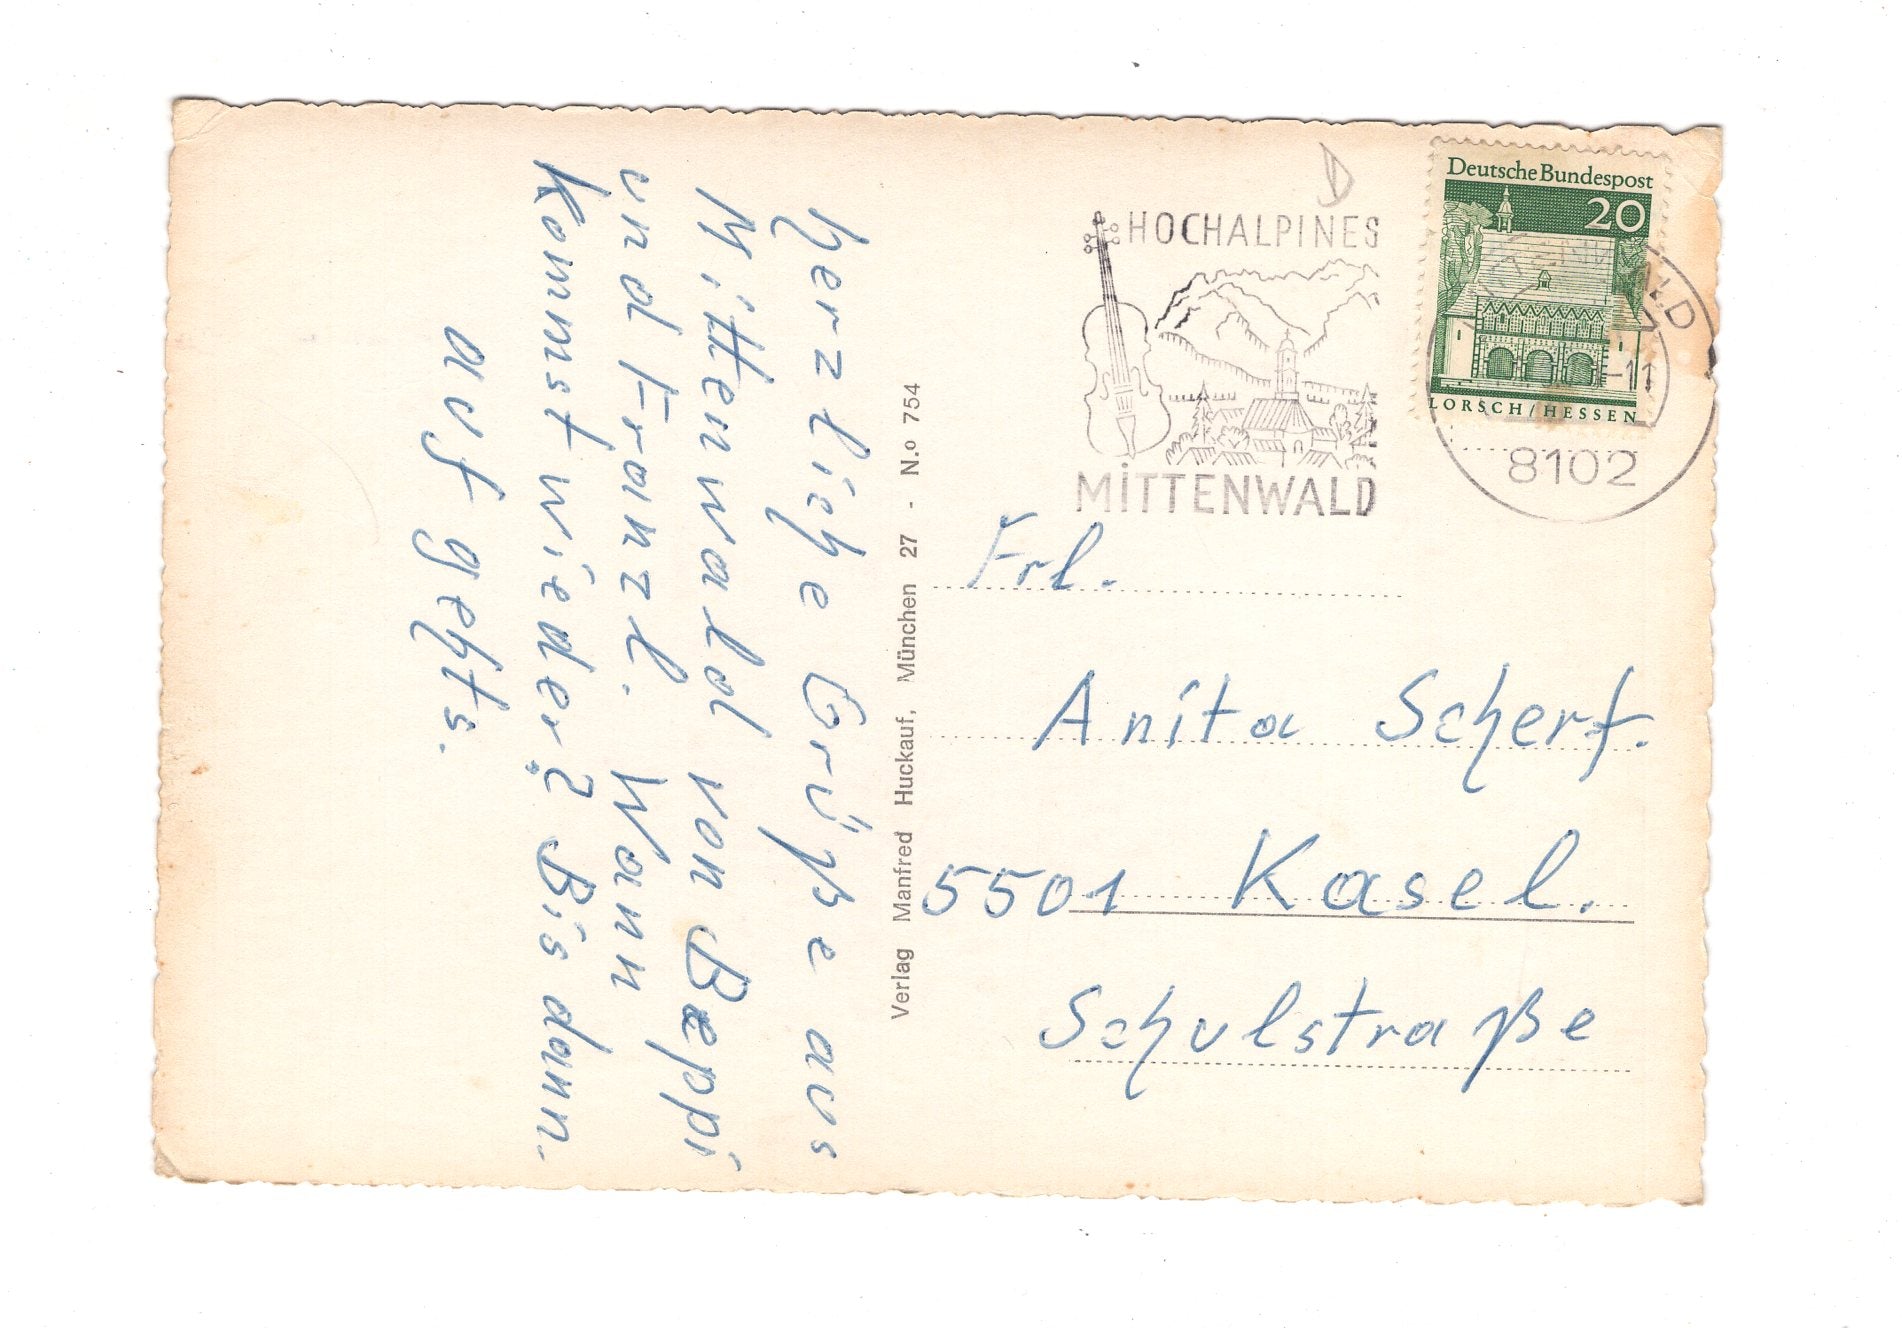 Herzliche Grüße aus
Mittenwald von Beppi
und Franzl. Wann
kommst wieder? Bis dann.
auf gehts.
Verlag Manfred Huckauf, München 27 - N.o 754
HOCHALPINES
MiTTENWALD
Deutsche Bundespost
20
LORSCH/HESSEN
MITTENWALD
-11
8102
Frl.
Anita Scherf.
5501 Kasel.
Schulstraße